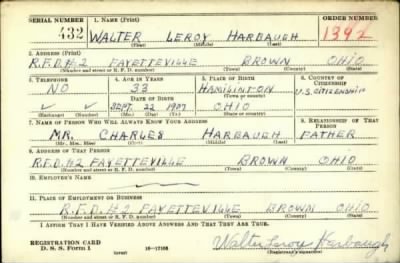 SERIAL NUMBER 1. NAME (Print) ORDER NUMBER
432 WALTER LEROY HARBAUGH 1392
(First) (Middle) (Last)
2. ADDRESS (Print)
R.F.D.#2 FAYETTEVILLE BROWN OHIO
(Number and street or R. F. D. number) (Town) (County) (State)
3. TELEPHONE 4. AGE IN YEARS 5. PLACE OF BIRTH 6. COUNTRY OF CITIZENSHIP
NO 33 HAMILINTON U.S. CITIZENSHIP
DATE OF BIRTH (Town or county)
SEPT 22 1907 OHIO
(Exchange) (Number) (Mo.) (Day) (Yr.) (State or country)
7. NAME OF PERSON WHO WILL ALWAYS KNOW YOUR ADDRESS 8. RELATIONSHIP OF THAT PERSON
MR. CHARLES HARBAUGH FATHER
(Mr., Mrs., Miss) (First) (Middle) (Last)
9. ADDRESS OF THAT PERSON
R.F.D.#2 FAYETTEVILLE BROWN OHIO
(Number and street or R. F. D. number) (Town) (County) (State)
10. EMPLOYER'S NAME
11. PLACE OF EMPLOYMENT OR BUSINESS
R.F.D. #2 FAYETTEVILLE BROWN OHIO
(Number and street or R. F. D. number) (Town) (County) (State)
I AFFIRM THAT I HAVE VERIFIED ABOVE ANSWERS AND THAT THEY ARE TRUE.
REGISTRATION CARD Walter Leroy Harbaugh
D. S. S. Form 1 (over) 16—17105 (Registrant's signature)